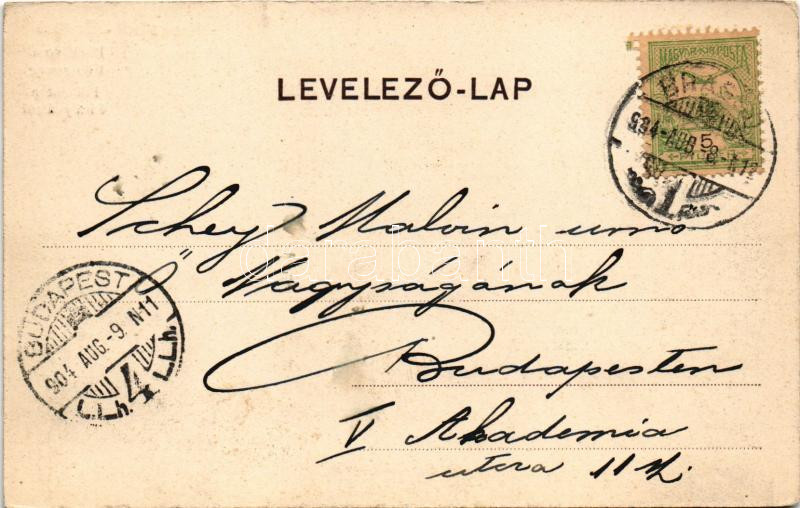 LEVELEZŐ-LAP
MAGYAR KIR. POSTA
5
BRASSÓ
904-AUG.-8-N.12
1
Schey Malvin urnő
Ő Nagyságának
Budapesten
V Akademia
utcza 11 sz.
BUDAPEST
904 AUG.-9. N11
4
L.L.h. L.L.h.
darabanth